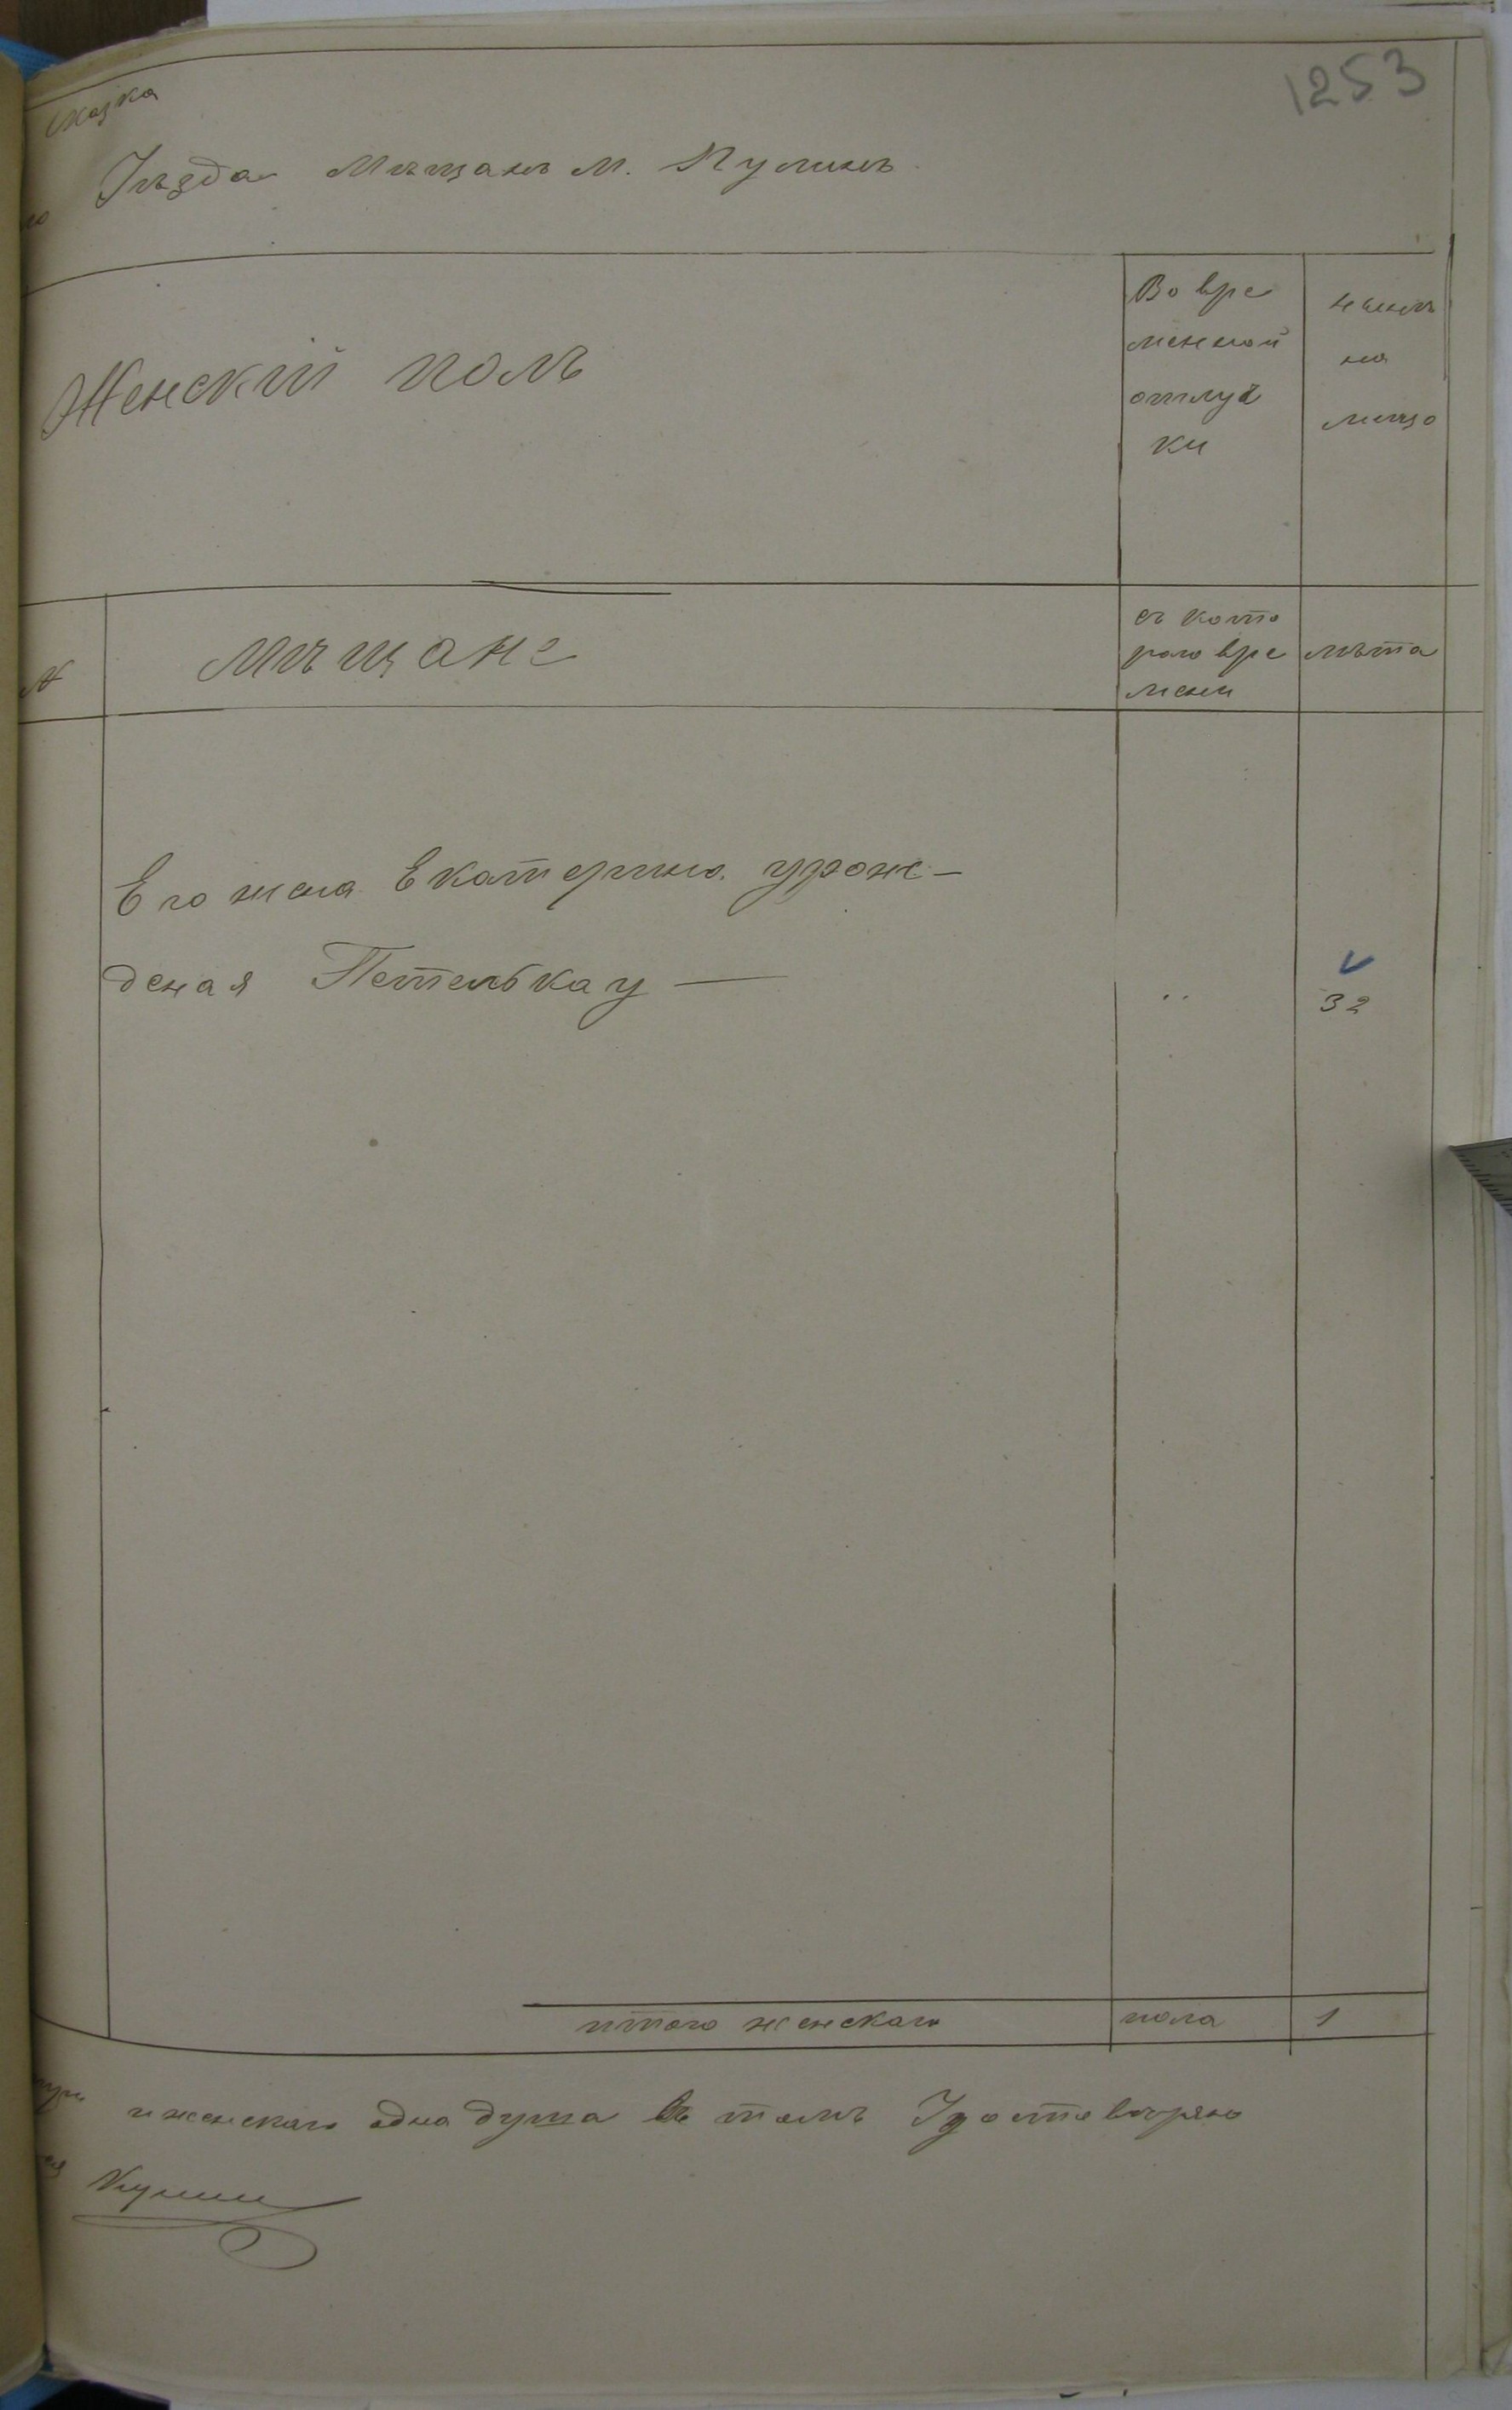 1253
сказка
Уѣзда Мѣщанъ м. Кулинъ
Женскій полъ
Во вре
менной
отлуч
ки
нынѣ
на
лицо
№
мѣщане
съ кото
раго вре
мени
лѣта
Его жена Екатерина урож-
деная Петелькау —
32
итого женскаго пола 1
и женскаго одна душа въ томъ Удостовѣряю